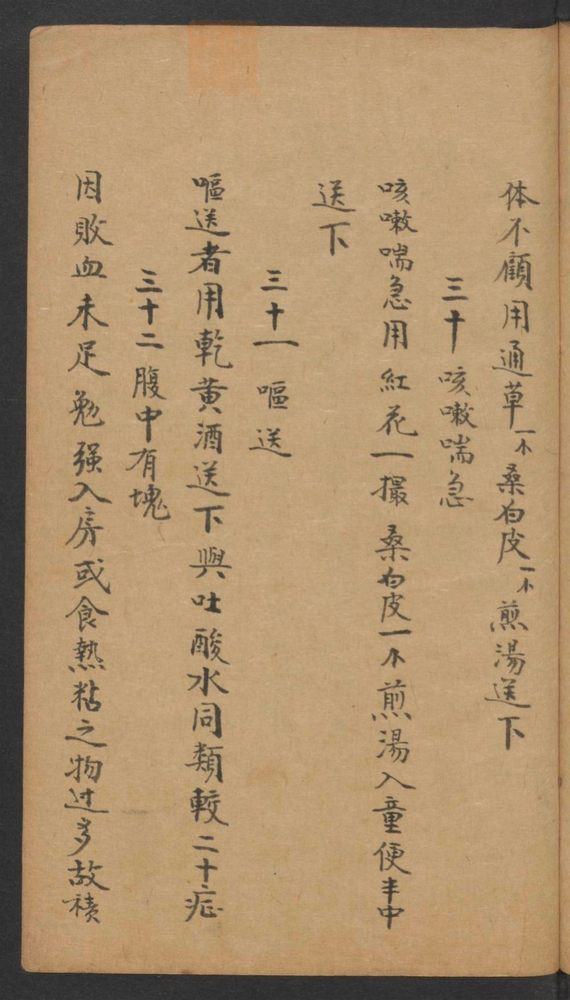 体不顧用通草一个桑白皮一个煎湯送下
三十咳嗽喘急
咳嗽喘急用紅花一撮桑白皮一个煎湯入童便半中
送下
三十一嘔送
嘔送者用乾黃酒送下與吐酸水同類較二十症
三十二腹中有塊
因敗血未足勉强入房或食熱粘之物过多故積